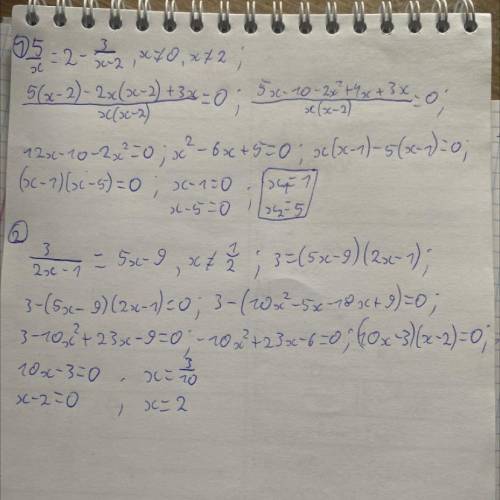 ① 5/x = 2 - 3/(x-2), x≠0, x≠2;
(5(x-2)-2x(x-2)+3x)/(x(x-2)) = 0; (5x-10-2x²+4x+3x)/(x(x-2)) = 0;
12x-10-2x²=0; x²-6x+5=0; x(x-1)-5(x-1)=0;
(x-1)(x-5)=0; x-1=0; x₁=1
x-5=0 x₂=5
② 3/(2x-1) = 5x-9, x≠1/2; 3=(5x-9)(2x-1);
3-(5x-9)(2x-1)=0; 3-(10x²-5x-18x+9)=0;
3-10x²+23x-9=0; -10x²+23x-6=0; (10x-3)(x-2)=0;
10x-3=0, x=3/10
x-2=0, x=2